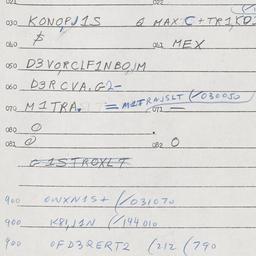 021 022
030 KONOPJ1S & MAX C + TR1KO
040 $ 041 MEX
050 D3VORCLF1NBOJM
060 D3RCVA.G2-
070 M1TRA. = M1TRAJSLT (/030050 071 -
080 0 .
081 0 082 0
G1STROXLT
900 OWXN1S+ (/031070
900 K8I,J1N (/144010
900 OFD3RERT2 (212 (790